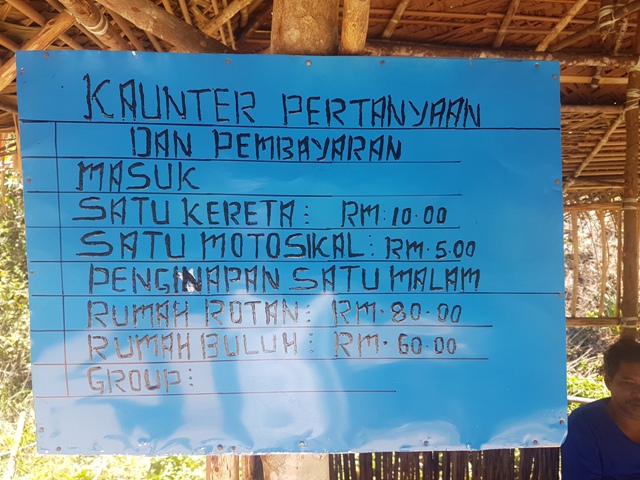 KAUNTER PERTANYAAN
DAN PEMBAYARAN
MASUK
SATU KERETA: RM: 10.00
SATU MOTOSIKAL: RM. 5.00
PENGINAPAN SATU MALAM
RUMAH ROTAN: RM. 80.00
RUMAH BULUH: RM. 60.00
GROUP: